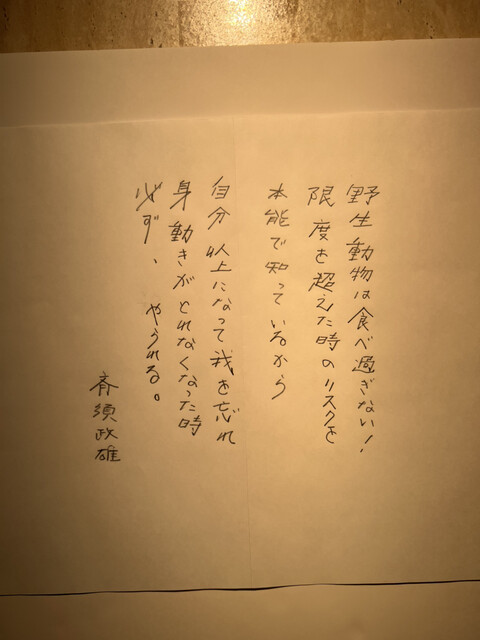 野生動物は食べ過ぎない!
限度を超えた時のリスクを
本能で知っているから
自分以上になって我を忘れ
身動きがとれなくなった時
必ず、やられる。
斉須政雄